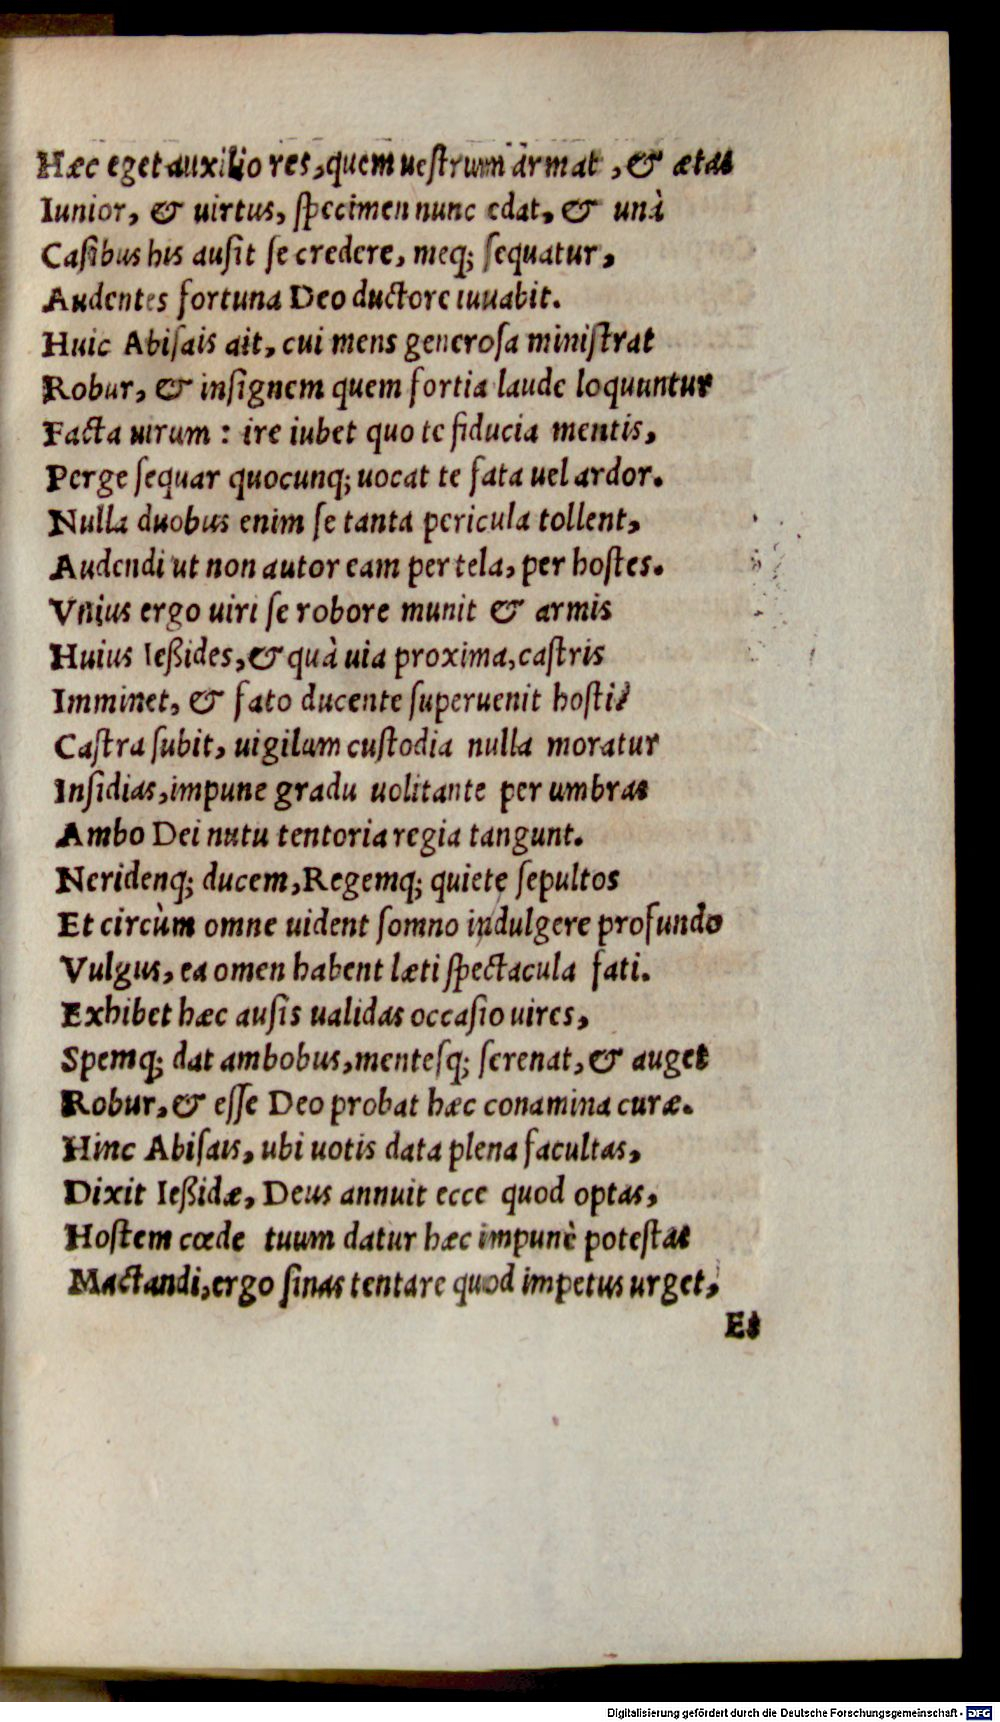 Hæc eget auxilio res, quem uestrum armat, & ætas
Iunior, & uirtus, ſpecimen nunc edat, & unà
Caſibus his auſit ſe credere, meq; ſequatur,
Audentes fortuna Deo ductore iuuabit.
Huic Abiſais ait, cui mens generoſa miniſtrat
Robur, & inſignem quem fortia laude loquuntur
Facta uirum : ire iubet quo te fiducia mentis,
Perge ſequar quocunq; uocat te fata uel ardor.
Nulla duobus enim ſe tanta pericula tollent,
Audendi ut non autor eam per tela, per hoſtes.
Vnius ergo uiri ſe robore munit & armis
Huius Ießides, & quà uia proxima, caſtris
Imminet, & fato ducente ſuperuenit hoſti:
Caſtra ſubit, uigilum cuſtodia nulla moratur
Inſidias, impune gradu uolitante per umbras
Ambo Dei nutu tentoria regia tangunt.
Neridenq; ducem, Regemq; quiete ſepultos
Et circùm omne uident ſomno indulgere profundo
Vulgus, ea omen habent læti ſpectacula fati.
Exhibet hæc auſis ualidas occaſio uires,
Spemq; dat ambobus, menteſq; ſerenat, & auget
Robur, & eſſe Deo probat hæc conamina curæ.
Hinc Abiſais, ubi uotis data plena facultas,
Dixit Ießidæ, Deus annuit ecce quod optas,
Hoſtem cœde tuum datur hæc impunè poteſtas
Mactandi, ergo ſinas tentare quod impetus urget,
Et
Digitalisierung gefördert durch die Deutsche Forschungsgemeinschaft - DFG